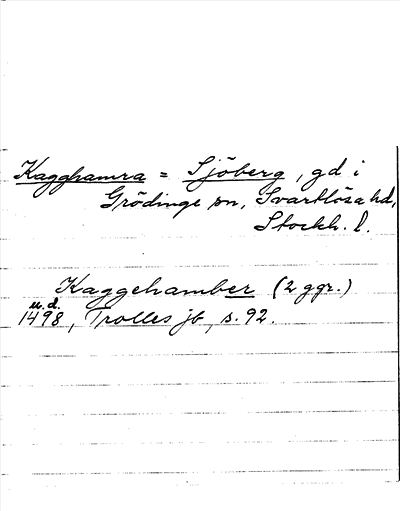 Kagghamra = Sjöberg, gd i
Grödinge sn, Svartlösa hd,
Stockh. l.
Kaggehamber (2 ggr.)
u.d.
1498, Trolles jb, s. 92.